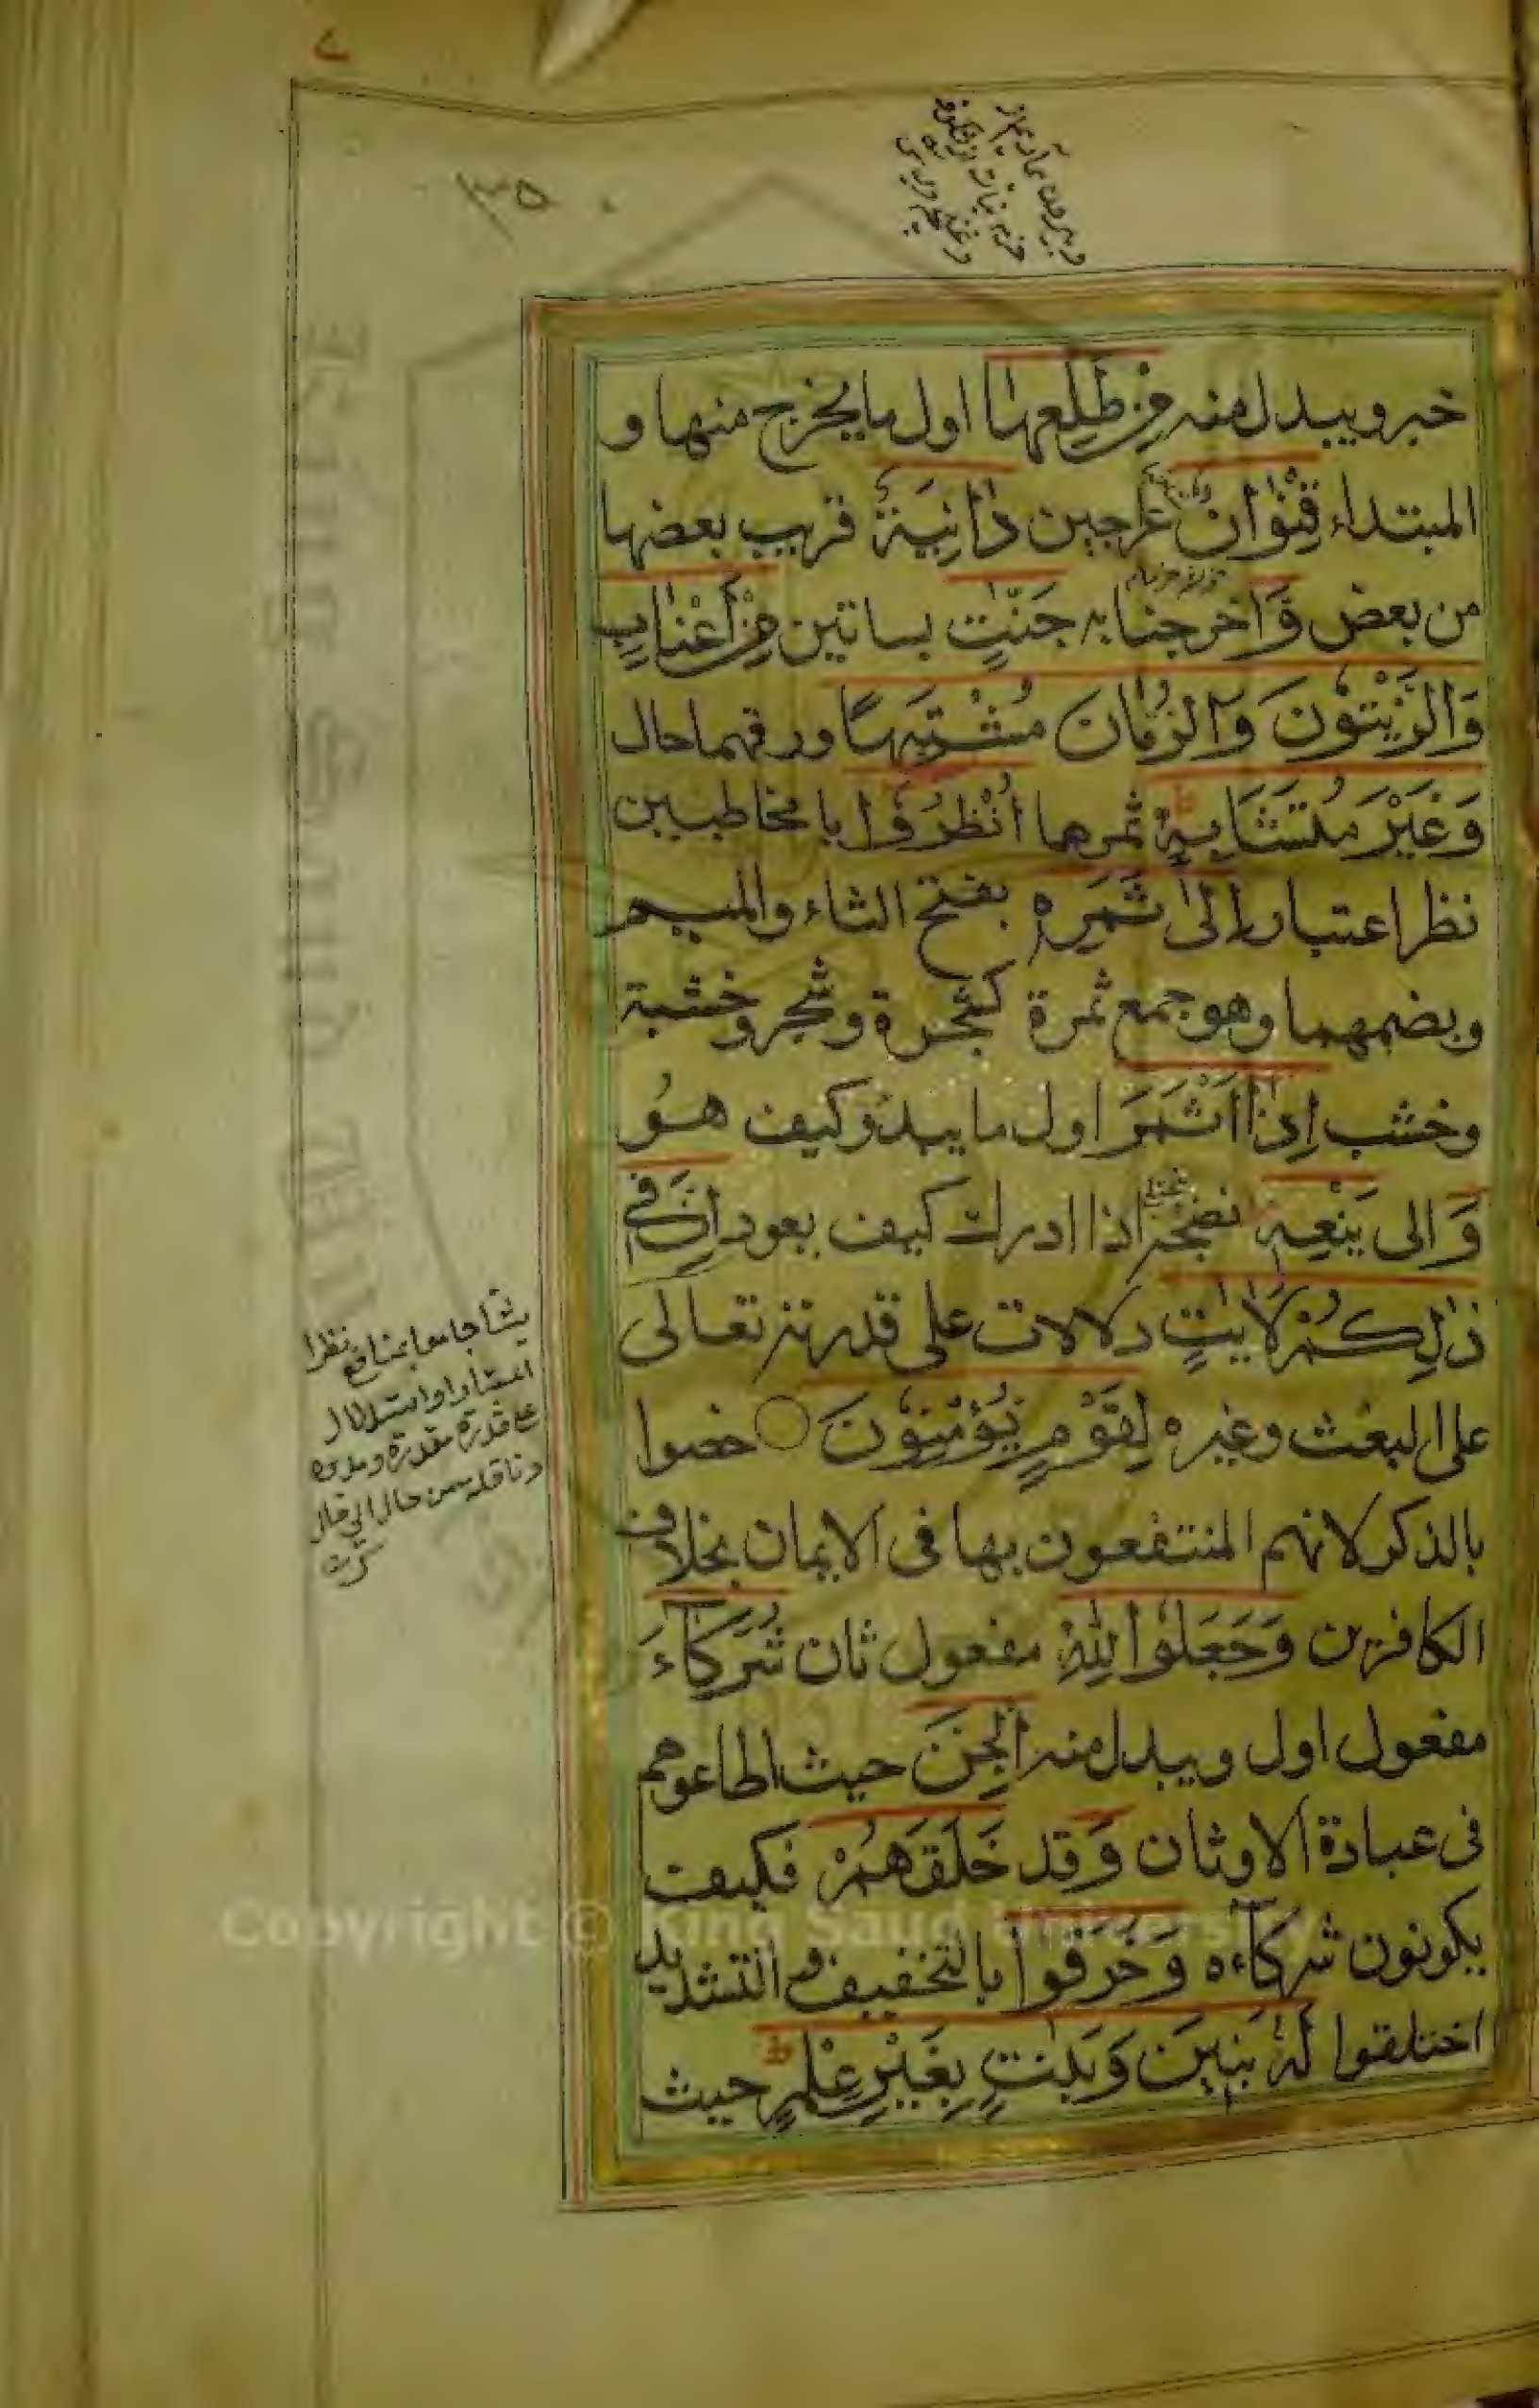 ٣٥
خبر ويبدل منه مِنْ طَلْعِهَا اول ما يخرج منها و
المبتداء قِنْوَانٌ عراجين دَانِيَةٌ قريب بعضها
من بعض وَاخرجنا به جَنّٰتٍ بساتين مِنْ أَعْنَابٍ
وَالزَّيْتُونَ وَالرُّمَّانَ مُشْتَبِهًا ورقهما حال
وَغَيْرَ مُتَشَابِهٍ ط ثمرهما اُنْظُرُوا يا مخاطبين
نظر اعتبار اِلٰى ثَمَرِهِ بفتح الثاء والميم
وبضمهما وهو جمع ثمرة كشجرة وشجر وخشبة
وخشب اِذَا اَثْمَرَ اول ما يبدو كيف هو
وَالى يَنْعِهِ نضجه اذا ادرك كيف يعود اِنَّ فِي
ذٰلِكُمْ لَاٰيٰتٍ دلالات على قدرته تعالى
على البعث وغيره لِقَوْمٍ يُؤْمِنُونَ خصوا
بالذكر لانهم المنتفعون بها في الايمان بخلاف
الكافرين وَجَعَلُوا لِلّٰهِ مفعول ثان شُرَكَآءَ
مفعول اول ويبدل منه الْجِنَّ حيث اطاعوهم
في عبادة الاوثان وَقد خَلَقَهُمْ فكيف
يكونون شركآءه وَخَرَقُوا بالتخفيف والتشديد
اختلقوا لَهُ بَنِينَ وَبَنٰتٍ بِغَيْرِ عِلْمٍ ط حيث
على قدرة مقدرة
من حال الى حال
Copyright © King Saud University